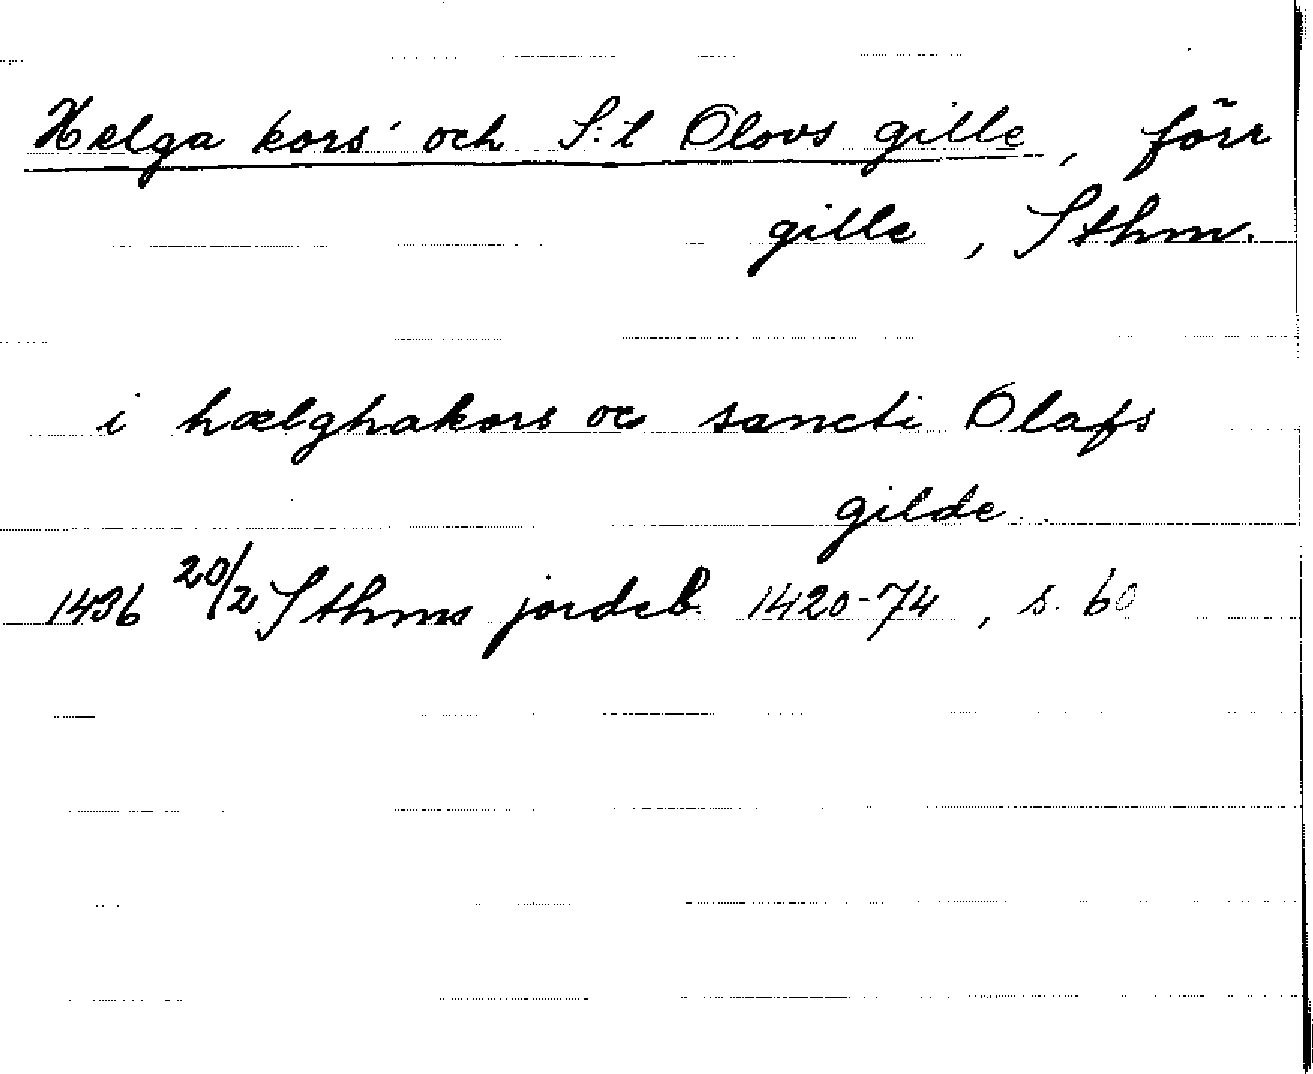 Helga kors' och S:t Olovs gille, förr
gille, Sthm.
i hælghakors oc sancti Olafs
gilde
1436 20/2 Sthms jordeb. 1420-74, s. 60